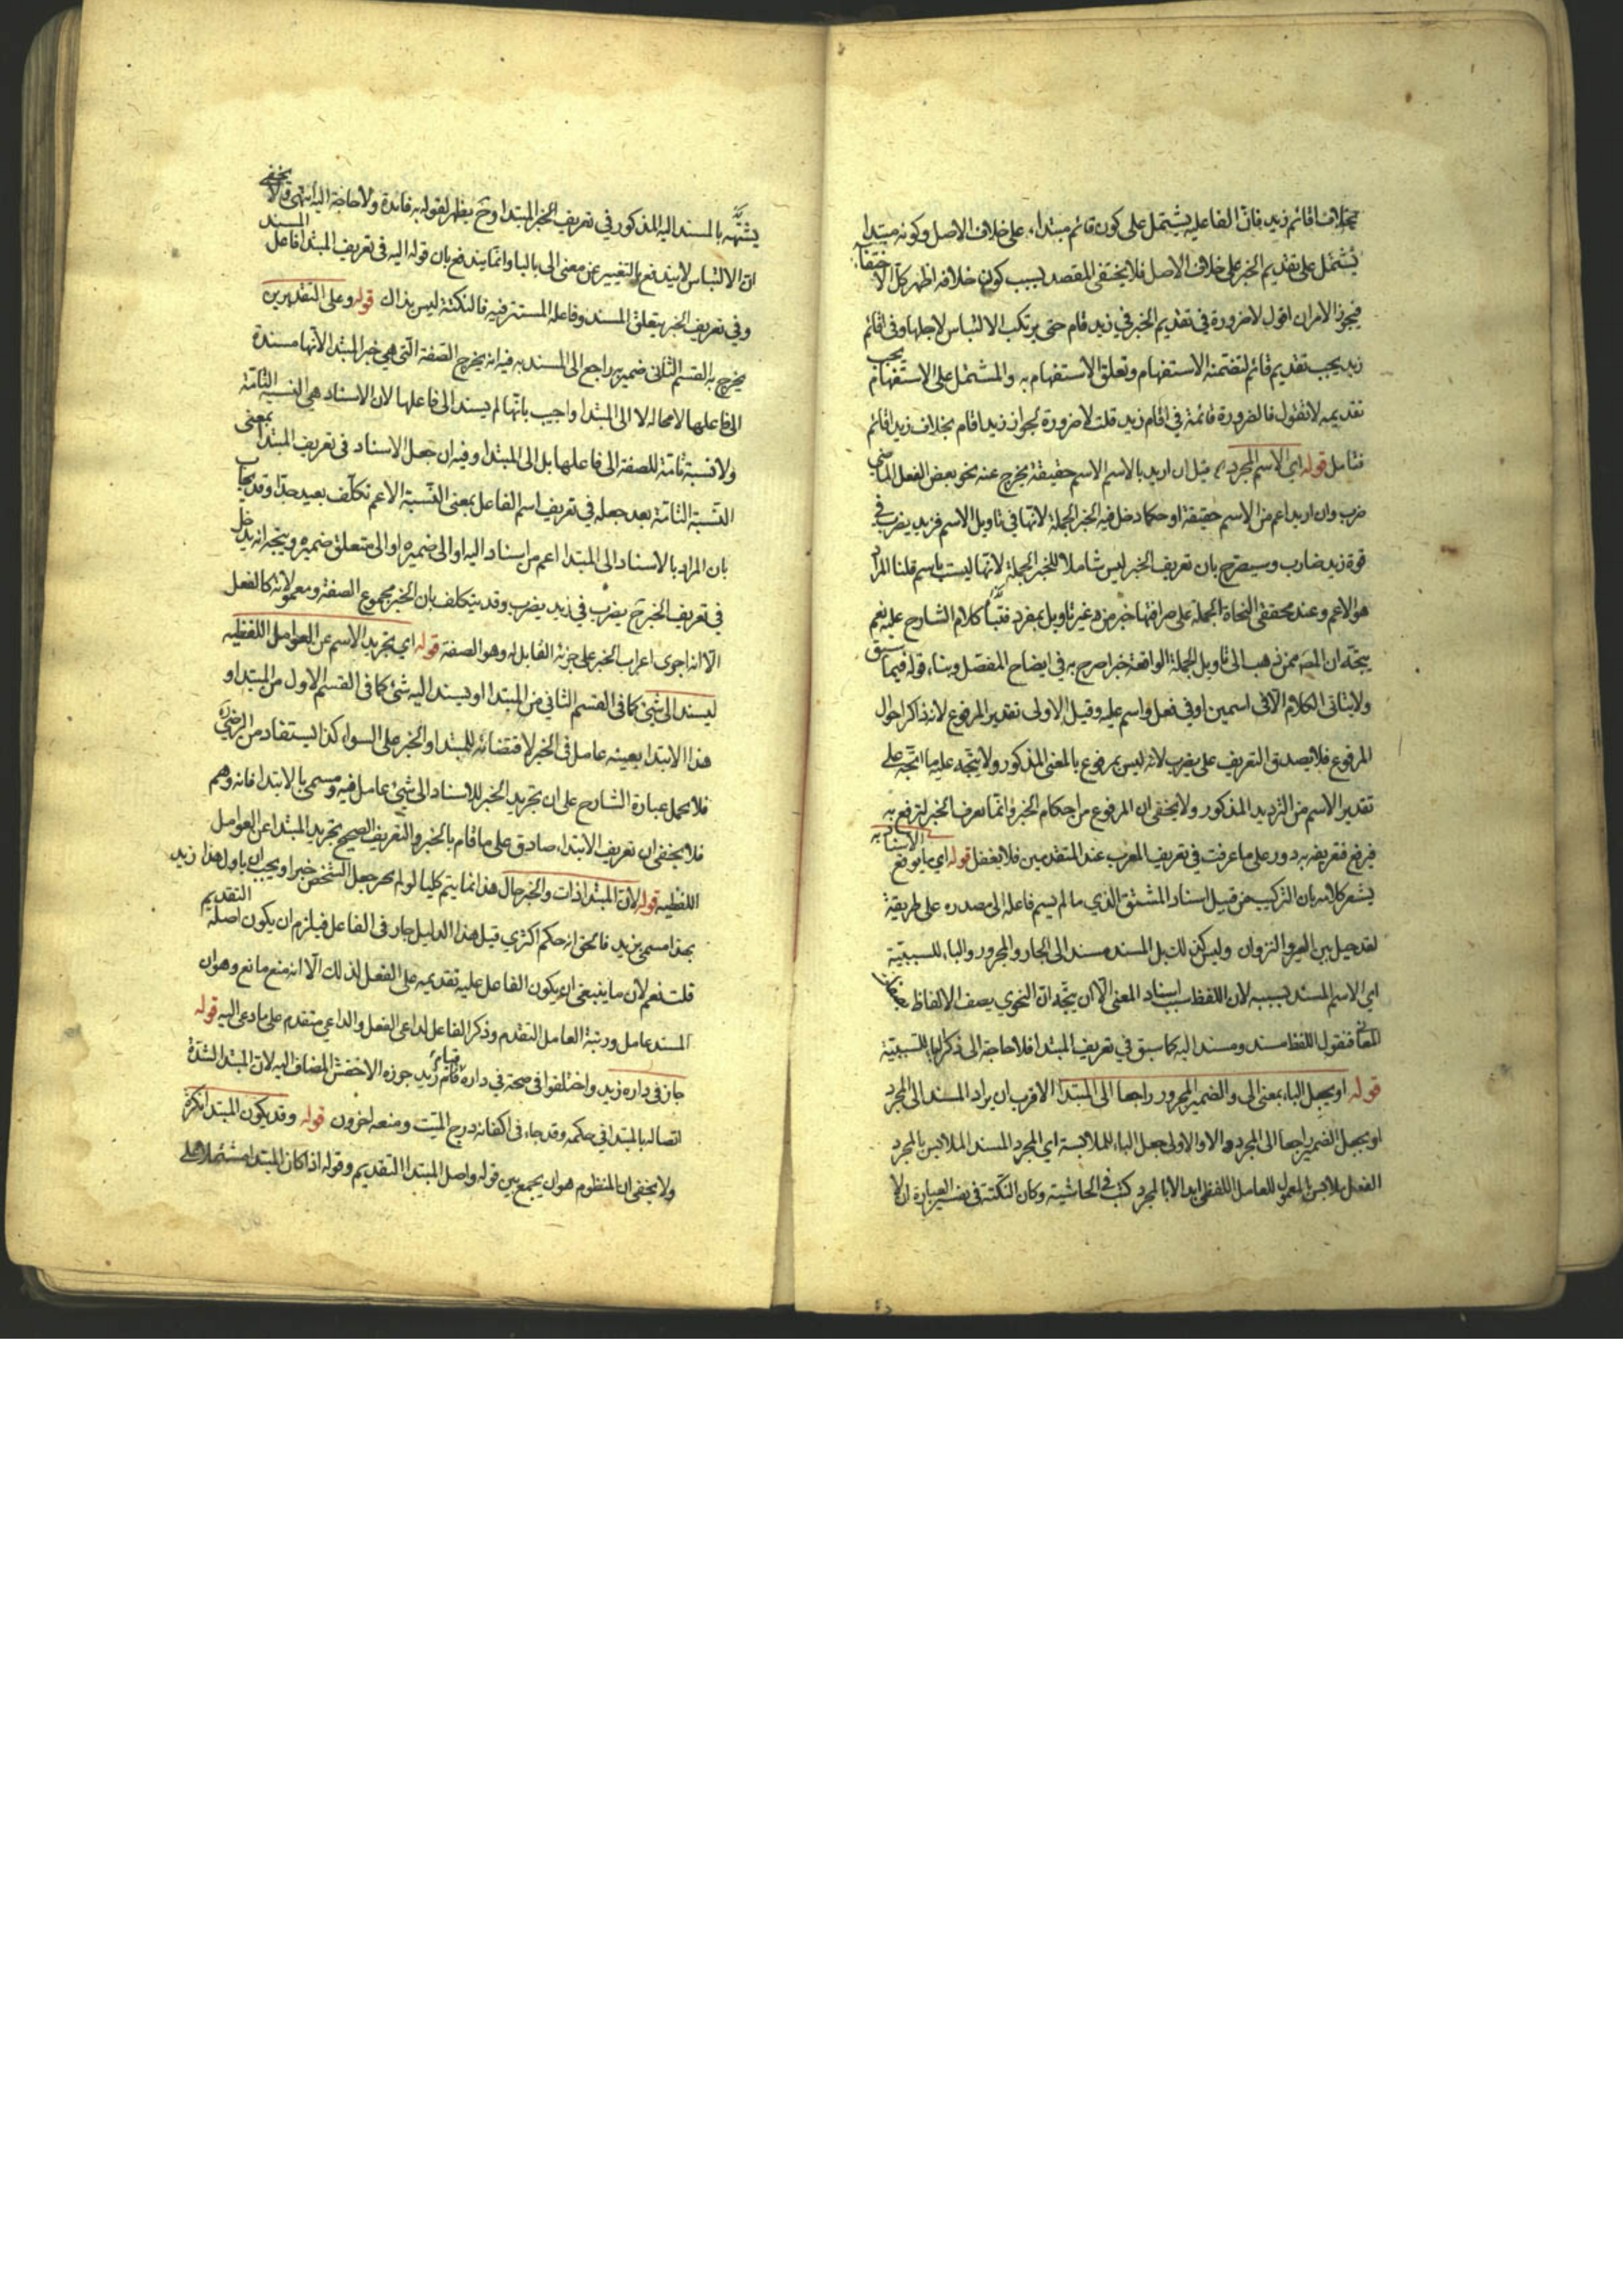 بخلاف اقائم زيد فان الفاعلية يشتمل على كون قائم مبتداء على خلاف الاصل وكونه مبتدا
يشتمل على تقديم الخبر على خلاف الاصل فلا يختفى المقصد بسبب كون خلافه اظهر كل الاختفاء
فيجوز الامران اقول لا ضرورة في تقديم الخبر في زيد قام حتى يرتكب الالتباس لاجلها وفى اقائم
زيد يجب تقديم قائم لتضمنه الاستفهام وتعلق الاستفهام به والمشتمل على الاستفهام يجب
تقديمه لا تقول فالضرورة قائمة في اقام زيد قلت لا ضرورة لجواز زيد اقام بخلاف زيد اقائم
فتامل قوله اى الاسم المجرد قيل ان اريد بالاسم الاسم حقيقة يخرج عنه نحو بعض الفعل الماضي
ضرب وان اريد اعم من الاسم حقيقة او حكما دخل فيه الخبر الجملة لانها في تاويل الاسم فزيد يضرب في
قوة زيد ضارب وسيصرح بان تعريف الخبر ليس شاملا للخبر الجملة لانها ليست باسم قلنا المراد
هو الاعم وعند محققى النحاة الجملة على صرافتها خبر من غير تاويل بمفرد كلام الشارح عليه نعم
يتجه ان المص ممن ذهب الى تاويل الجملة الواقعة خبرا صرح به في ايضاح المفصل وبناء قوله فيما سبق
ولا يتاتى الكلام الا في اسمين او في فعل واسم عليه وقيل الاولى تقدير المرفوع لانه ذاكر احوال
المرفوع فلا يصدق التعريف على يضرب لانه ليس بمرفوع بالمعنى المذكور ولا يتجه عليه ما اتجه على
تقدير الاسم من الترديد المذكور ولا يخفى ان المرفوع من احكام الخبر وانما تعرف الخبر لترفع به
فرفع فتعريفه به دور على ما عرفت في تعريف المعرب عند المتقدمين فلا تغفل قوله اى ما يوقع به الاسناد
يشعر كلامه بان التركيب من قبيل اسناد المشتق الذي ما لم يسم فاعله الى مصدره على طريقة
لقد حيل بين العير والنزوان وليس كذلك بل المسند مسند الى الجار والمجرور والباء للسببية
اى الاسم المسند بسببه لان اللفظ سبب اسناد المعنى الا ان يتجه ان النحوي يصف الالفاظ بصفات
المعاني فنقول اللفظ مسند ومسند اليه كما سبق في تعريف المبتدا فلا حاجة الى ذكر الباء للسببية
قوله او يجعل الباء بمعنى الى والضمير المجرور راجعا الى المبتدا الاقرب ان يراد المسند الى المجرد
او يجعل الضمير راجعا الى المجرد والاولى جعل الباء للملابسة اى المجرد المسند الملابس بالمجرد
الفعل يلابس المعمول للعامل اللفظى ابدا لا بالمجرد كتب في الحاشية وكان النكتة في تفسير العبارة ان لا
يشتبه بالمسند اليه المذكور في تعريف الخبر المبتدا وح يظهر لقوله به فائدة ولا حاجة اليه انتهى ولا يخفى
ان الالتباس لا يندفع بالتغيير عن معنى الى بالباء وانما يندفع بان قوله اليه في تعريف المبتدا فاعل المسند
وفى تعريف الخبر يتعلق المسند وفاعله المستتر فيه فالنكتة ليس بذاك قوله وعلى التقديرين
يخرج به القسم الثاني ضمير به راجع الى المسند به فيه انه يخرج الصفة التى هي خبر المبتدا لانها مسندة
الى فاعلها لا محالة لا الى المبتدا واجيب بانها لم يسند الى فاعلها لان الاسناد هى النسبة التامة
ولا نسبة تامة للصفة الى فاعلها بل الى المبتدا وفيه ان جعل الاسناد فى تعريف المبتدا بمعنى
النسبة التامة بعد جعله في تعريف اسم الفاعل بمعنى النسبة الاعم تكلف بعيد جدا وقد يجاب
بان المراد بالاسناد الى المبتدا اعم من اسناد اليه او الى ضميره او الى متعلق ضميره ويتجه انه يدخل
في تعريف الخبر ح يضرب في زيد يضرب وقد يتكلف بان الخبر مجموع الصفة ومعموله كالفعل
الا انه اجرى اعراب الخبر على جزئه القابل له وهو الصفة قوله اى تجريد الاسم عن العوامل اللفظية
ليسند الى شئ كما في القسم الثاني من المبتدا او يسند اليه شئ كما في القسم الاول من المبتدا و
هذا الابتدا بعينه عامل في الخبر لاقتضائه للمبتدا والخبر على السواء كذا يستفاد من الرضى
فلا يحمل عبارة الشارح على ان تجريد الخبر للاسناد الى شئ عامل فيه ومسمى بالابتدا فانه وهم
فلا يخفى ان تعريف الابتداء صادق على ما قام بالخبر والتعريف الصحيح تجريد المبتدا عن العوامل
اللفظية قوله لان المبتدا ذات والخبر حال هذا انما يتم كليا لو لم يجز جعل الشخص خبرا ويجب ان ياول هذا زيد
بهذا مسمى بزيد فالحق انه حكم اكثري قيل هذا الدليل جار في الفاعل فيلزم ان يكون اصله التقديم
قلت نعم لان ما ينبغى ان يكون الفاعل عليه تقديمه على الفعل لذلك الا انه منع مانع وهو ان
المسند عامل ورتبة العامل التقدم وذكر الفاعل لداعى الفعل والداعى متقدم على ما دعى اليه قوله
جاز في داره زيد واختلفوا في صحة في داره قيام زيد جوزه الاخفش المضاف اليه لان المبتدا لشدة
اتصاله بالمبتدا في حكمه وقد جاء فى اكفانه درج الميت ومنعه اخرون قوله وقد يكون المبتدا نكرة
ولا يخفى ان المنظوم هو ان يجمع بين قوله واصل المبتدا التقديم وقوله اذا كان المبتدا مشتملا على